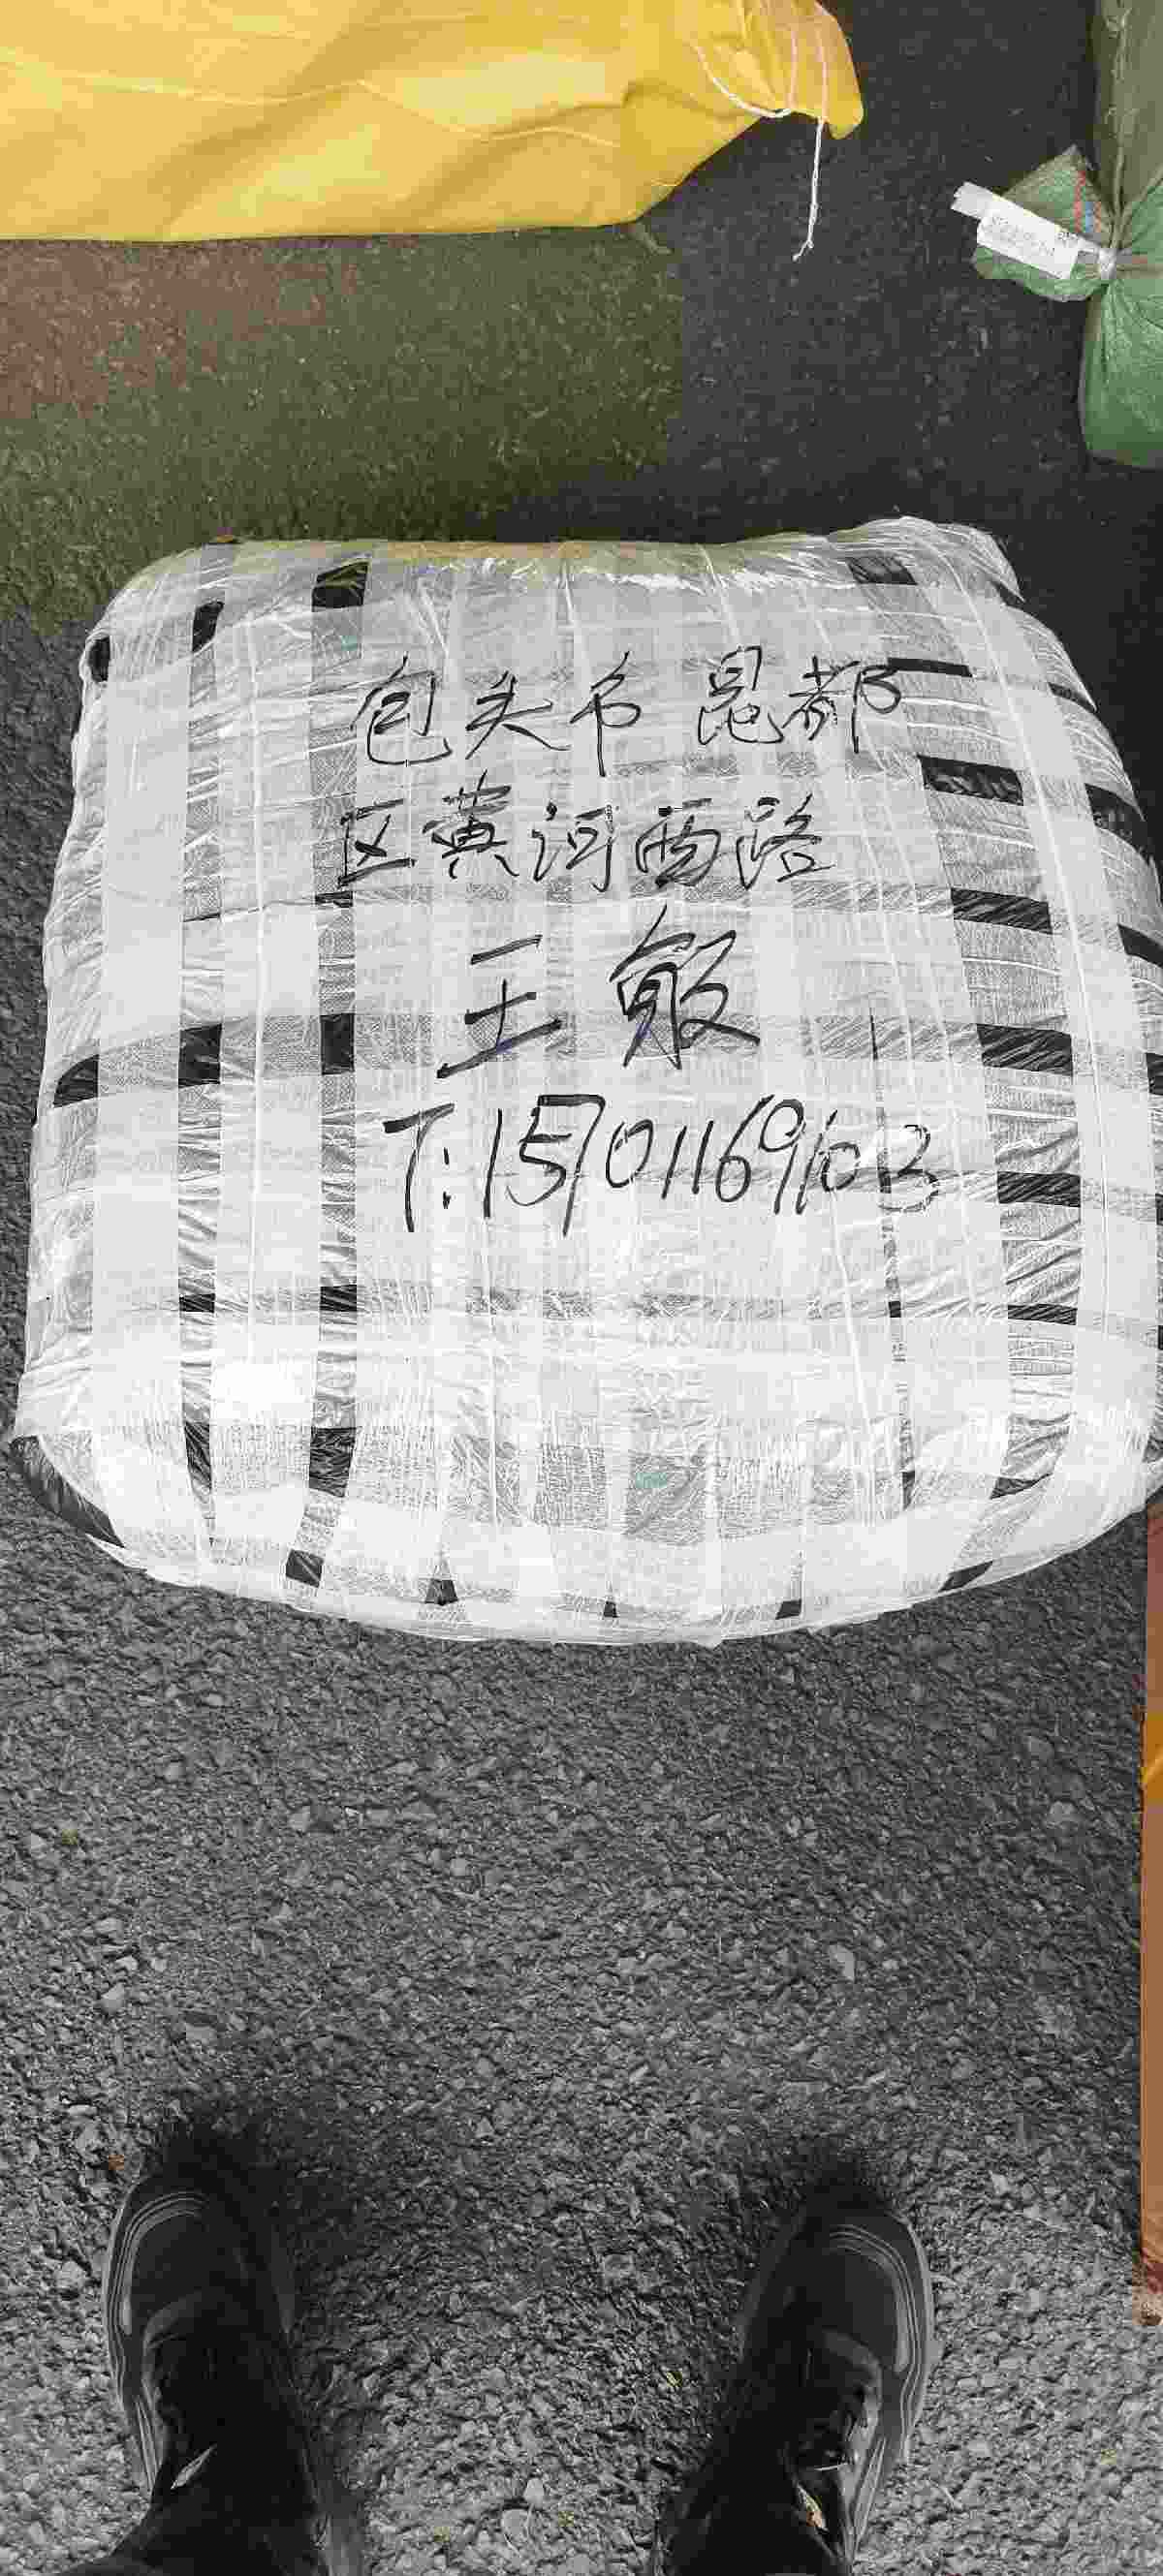 包头市 昆都
区黄河西路
王毅
T:15701169103